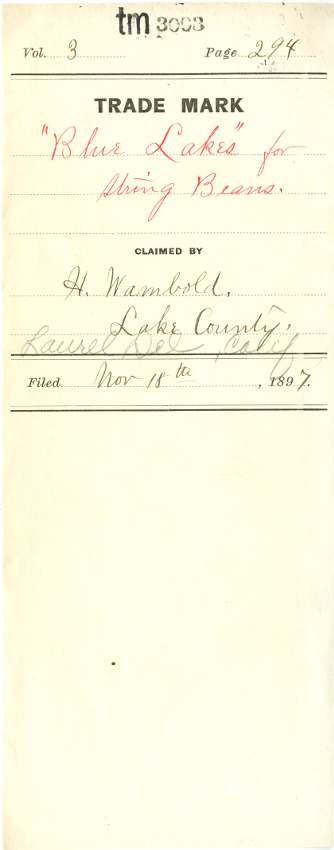 tm 3003
Vol. 3 Page 294
TRADE MARK
"Blue Lakes" for
String Beans.
CLAIMED BY
H. Wambold,
Lake County,
Laurel Del, Calif
Filed Nov 18th, 1897.